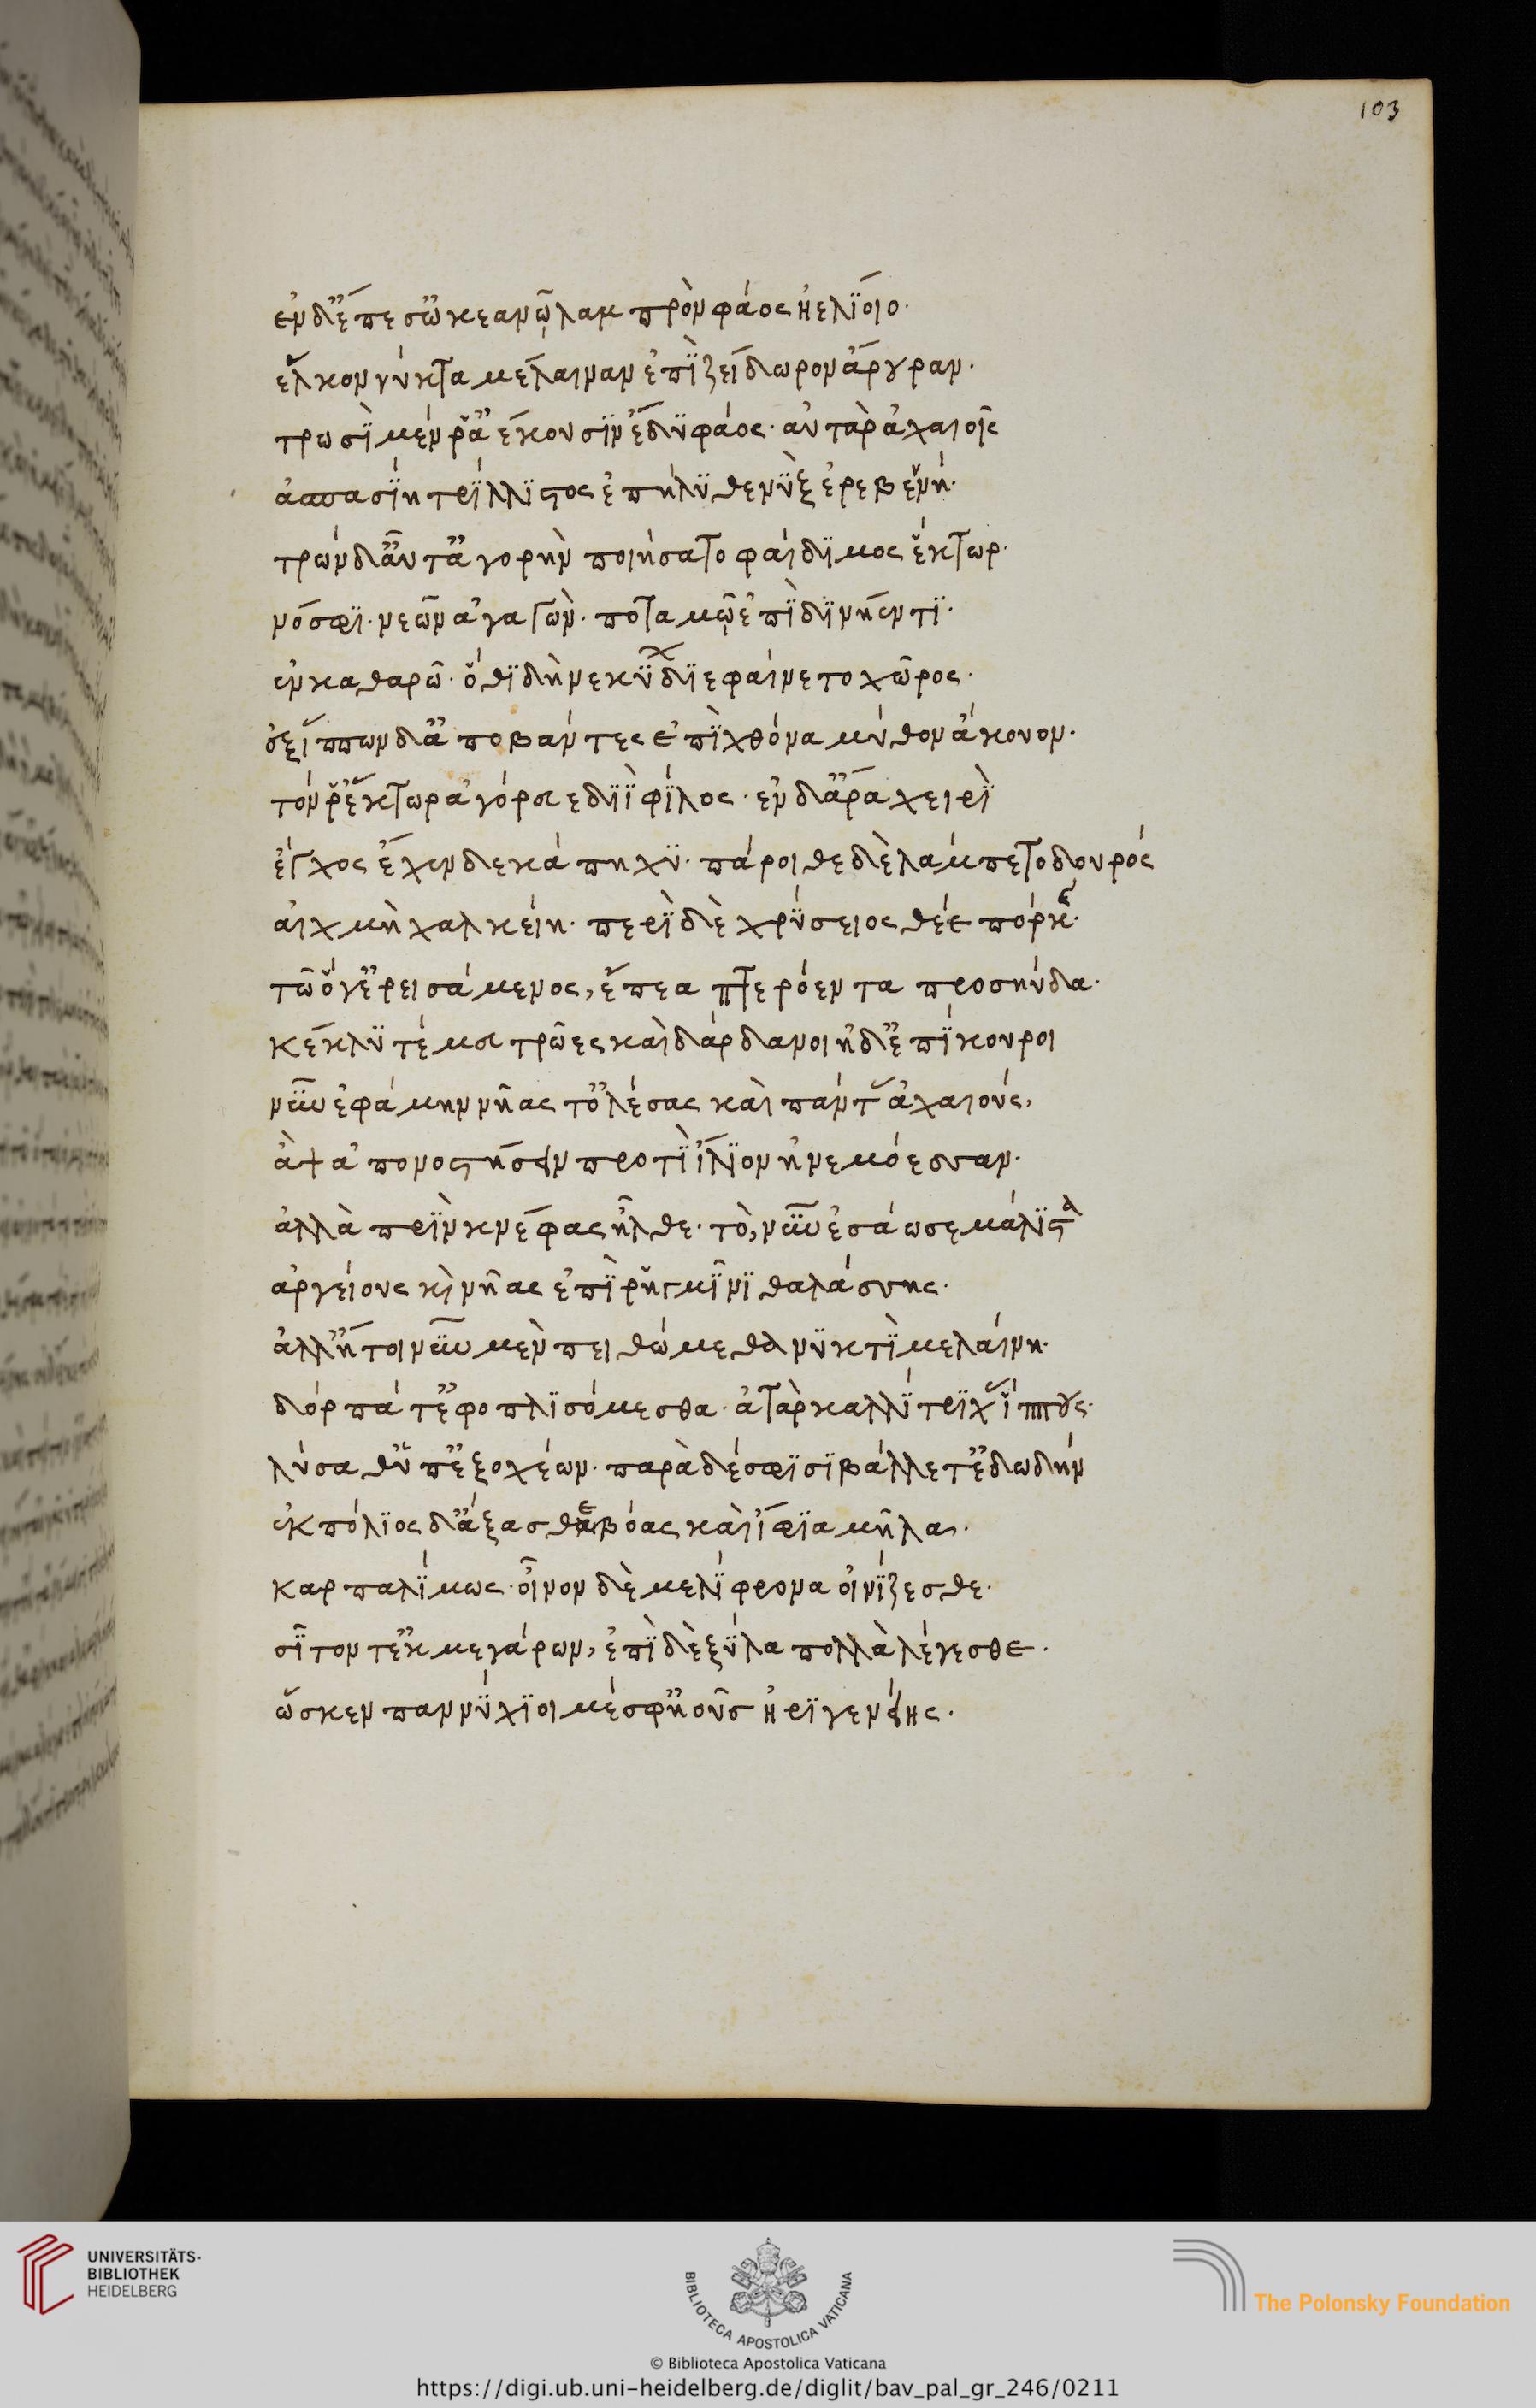 103
ἐν δ' ἔπεσ' ὠκεανῷ λαμπρὸν φάος ἠελίοιο·
ἕλκον νύκτα μέλαιναν ἐπὶ ζείδωρον ἄρουραν·
τρωσὶ μέν ῥ' ἀέκουσιν ἔδυ φάος· αὐτὰρ ἀχαιοῖς
ἀσπασίη τρίλλιστος ἐπήλυθε νὺξ ἐρεβεννή·
τρώων δ' αὖτ' ἀγορὴν ποιήσατο φαίδιμος ἕκτωρ·
νόσφι· νεῶν ἀγαγών· ποταμῷ ἐπὶ δινήεντι·
ἐν καθαρῷ· ὅθι δὴ νεκύων διεφαίνετο χῶρος·
ἐξ ἵππων δ' ἀποβάντες ἐπὶ χθόνα μῦθον ἄκουον·
τόν ῥ' ἕκτωρ ἀγόρευε διῒ φίλος· ἐν δ' ἄρα χειρὶ
ἔγχος ἔχ' ἑνδεκάπηχυ· πάροιθε δὲ λάμπετο δουρός
αἰχμὴ χαλκείη· περὶ δὲ χρύσειος θέε πόρκης·
τῷ ὅ γ' ἐρεισάμενος, ἔπεα πτερόεντα προσηύδα·
κέκλυτέ μευ τρῶες καὶ δάρδανοι ἠδ' ἐπίκουροι
νῦν ἐφάμην νῆας τ' ὀλέσας καὶ πάντας ἀχαιούς,
ἂψ ἀπονοστήσειν προτὶ ἴλιον ἠνεμόεσσαν·
ἀλλὰ πρὶν κνέφας ἦλθε· τὸ, νῦν ἐσάωσε μάλιστα
ἀργείους καὶ νῆας ἐπὶ ῥηγμῖνι θαλάσσης·
ἀλλ' ἤτοι νῦν μὲν πειθώμεθα νυκτὶ μελαίνη·
δόρπά τ' ἐφοπλισόμεσθα· ἀτὰρ καλλίτριχας ἵππους·
λύσαθ' ὑπ' ἐξ ὀχέων· παρὰ δέ σφισι βάλλετ' ἐδωδήν
ἐκ πόλιος δ' ἄξασθε βόας καὶ ἴφια μῆλα·
καρπαλίμως· οἶνον δὲ μελίφρονα οἰνίζεσθε·
σῖτον τ' ἐκ μεγάρων, ἐπὶ δὲ ξύλα πολλὰ λέγεσθε·
ὥς κεν παννύχιοι μέσφ' ἠοῦς ἠριγενείης·
UNIVERSITÄTS-
BIBLIOTHEK
HEIDELBERG
BIBLIOTECA APOSTOLICA VATICANA
The Polonsky Foundation
© Biblioteca Apostolica Vaticana
https://digi.ub.uni-heidelberg.de/diglit/bav_pal_gr_246/0211